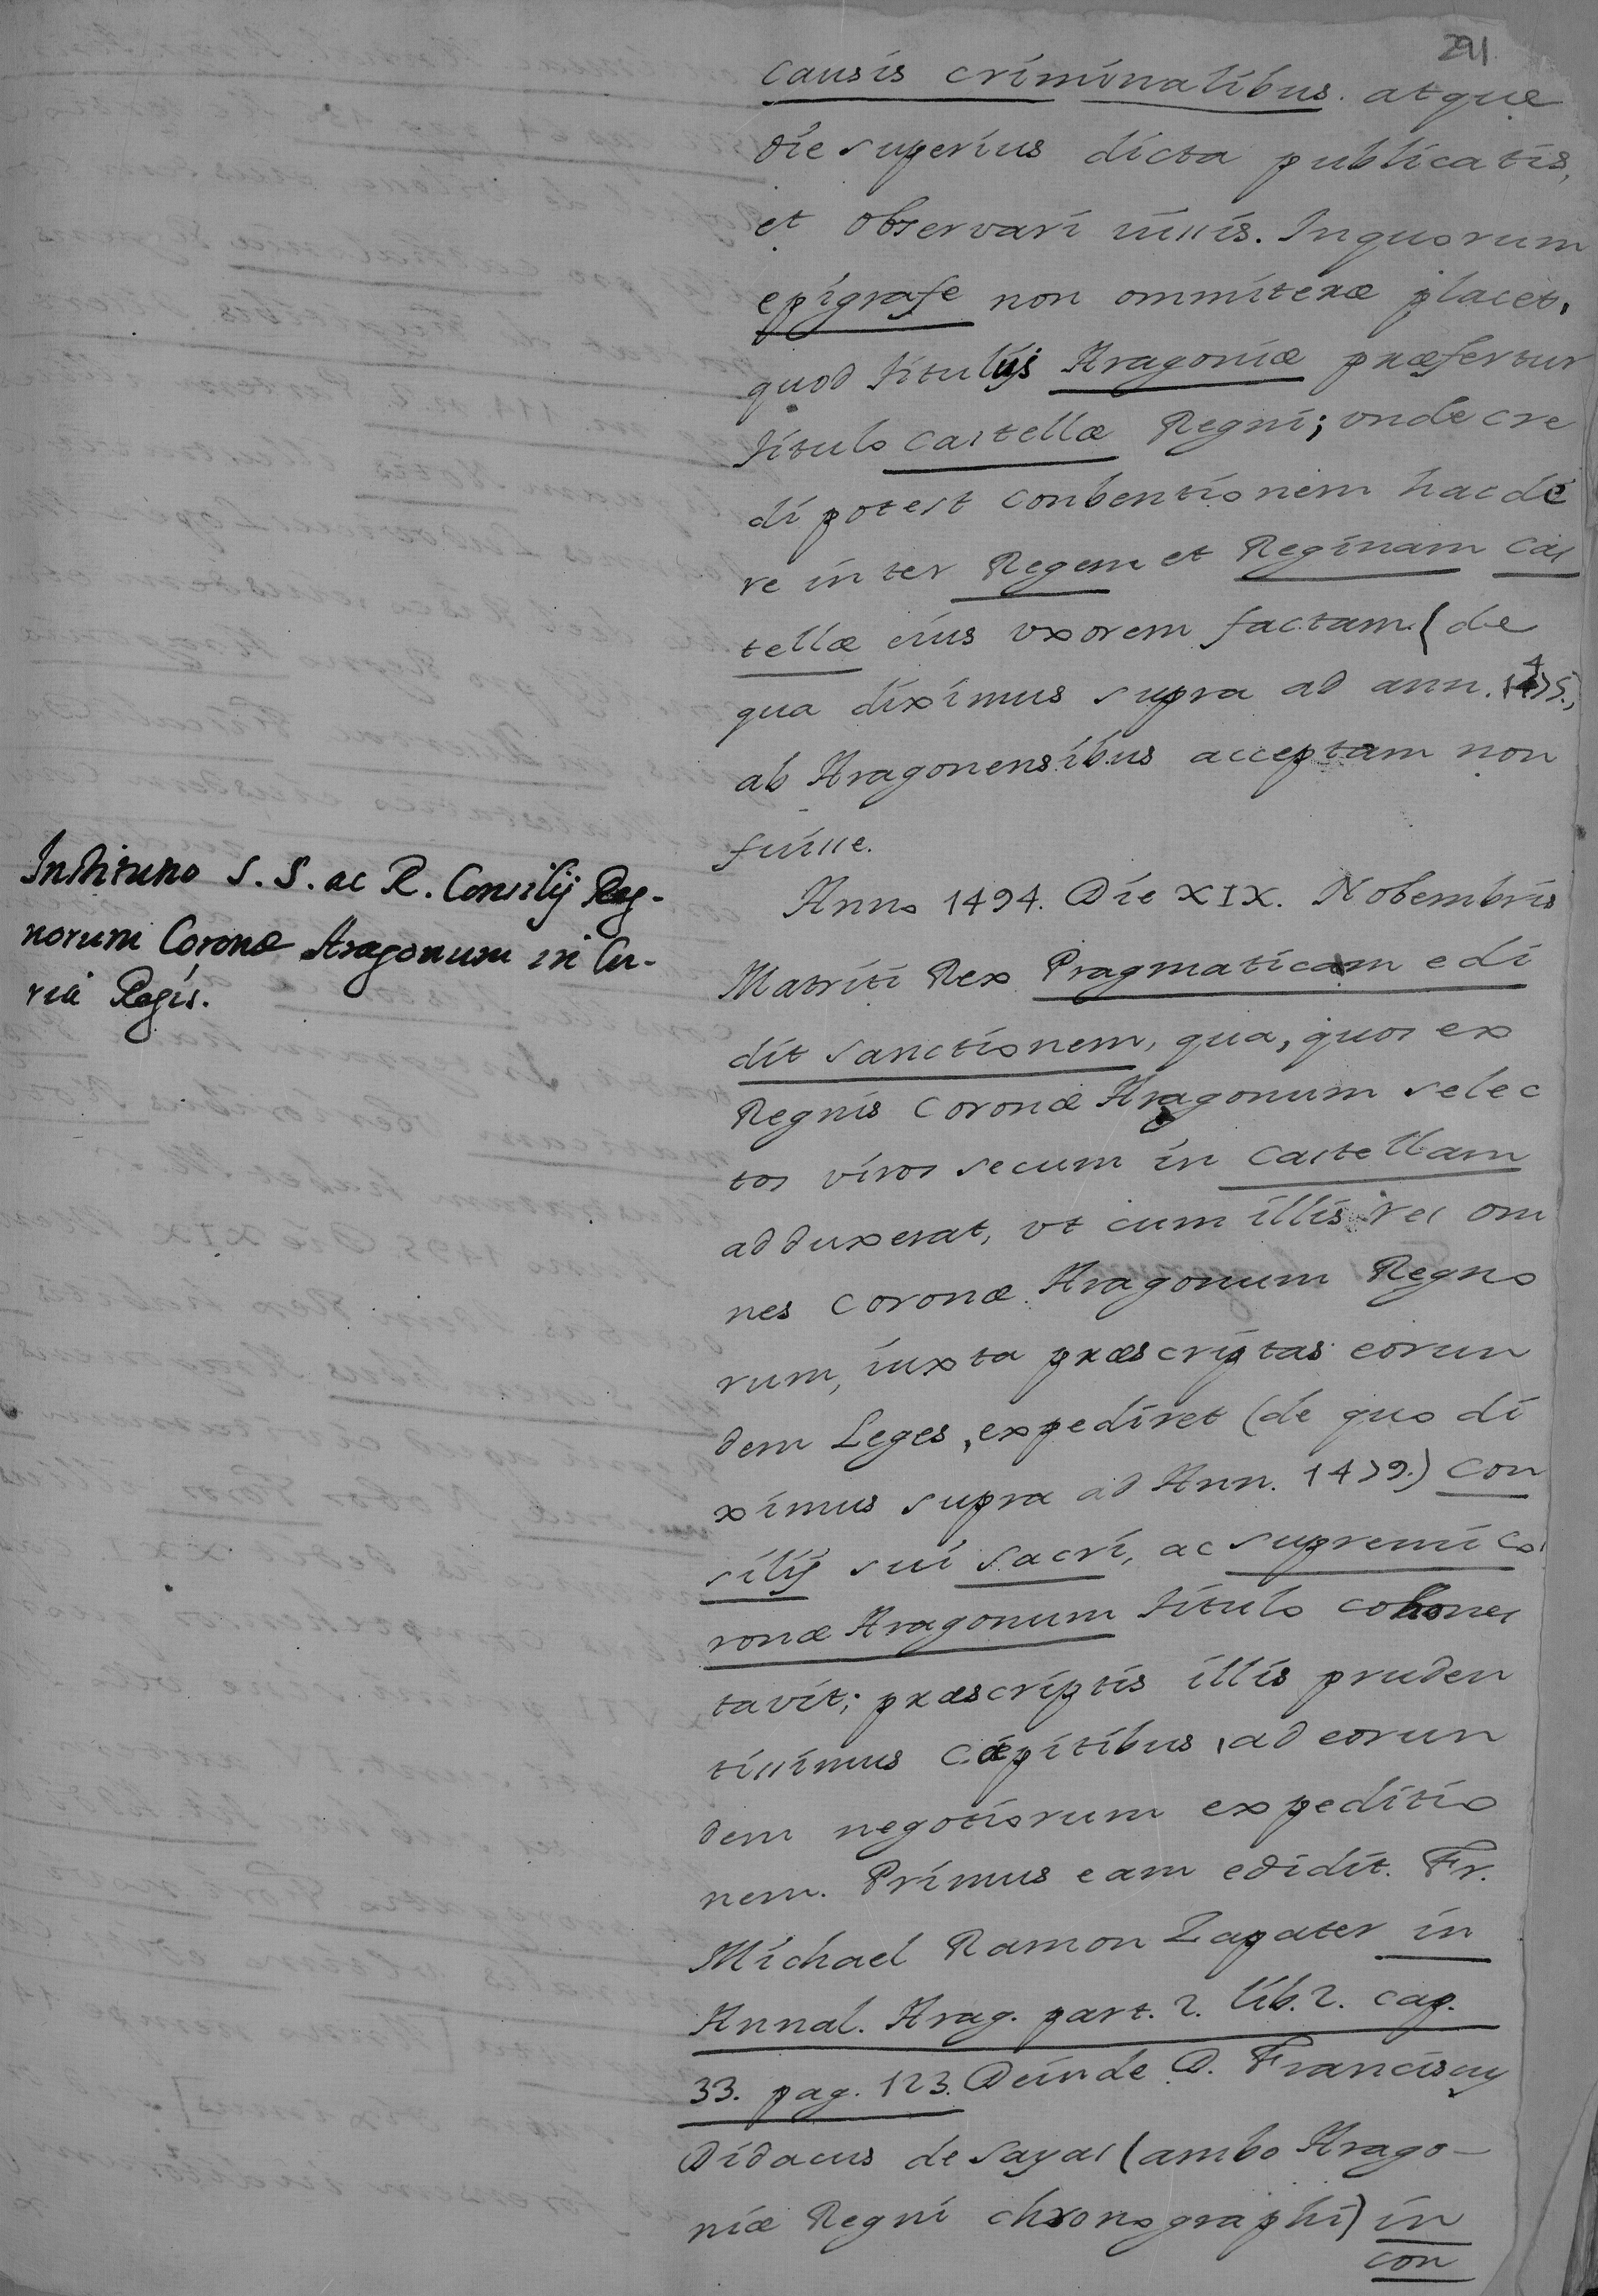 291
causis criminalibus. atque
die superius dicta publicatis,
et observari iussis. In quorum
epigrafe non ommitere placet,
quod titulus Aragoniæ præfertur
titulo Castellæ Regni; unde cre
di potest conbentionem hac de
re inter Regem et Reginam Cas
tellæ eius vxorem factam (de
qua diximus supra ad ann. 1475.,
ab Aragonensibus acceptam non
fuisse.
Institutio S. S. ac R. Consilij Reg-
norum Coronæ Aragonum in Cu-
ria Regis.
Anno 1494. Die XIX. Nobembris
Matriti Rex Pragmaticam edi
dit sanctionem, qua, quos ex
Regnis Coronæ Aragonum selec
tos viros secum in Castellam
adduxerat, vt cum illis res om
nes Coronæ Aragonum Regno
rum, iuxta præscriptas eorun
dem Leges, expediret (de quo di
ximus supra ad Ann. 1479.) Con
silij sui sacri, ac supremi Co
ronæ Aragonum titulo cohones
tavit; præscriptis illis pruden
tissimus capitibus, ad eorun
dem negotiorum expeditio
nem. Primus eam edidit. Fr.
Michael Ramon Zapater in
Annal. Arag. part. 2. lib. 2. cap.
33. pag. 123. Deinde D. Franciscus
Didacus de Sayas (ambo Arago-
niæ Regni chronographi) in
con